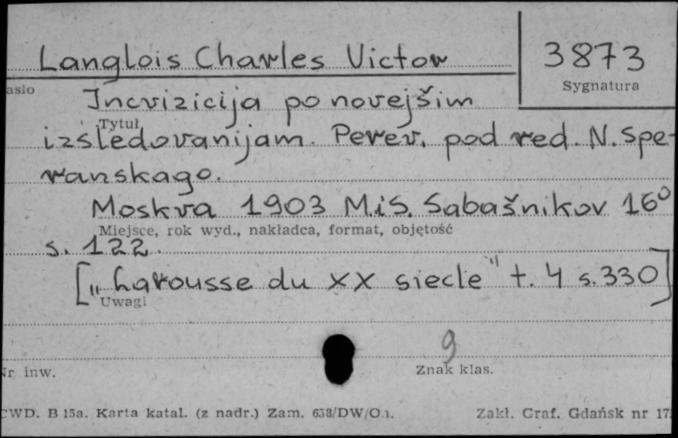 Langlois Charles Victor 3873
asło Sygnatura
Incvizicija po novejšim
Tytuł
izsledovanijam. Perev. pod red. N. Spe-
ranskago.
Moskva 1903 M.i S. Sabašnikov 16°
Miejsce, rok wyd., nakładca, format, objętość
s. 122.
["Larousse du XX siecle" t. 4 s. 330]
Uwagi
9
Nr inw. Znak klas.
CWD. B 15a. Karta katal. (z nadr.) Zam. Zakł. Graf. Gdańsk nr